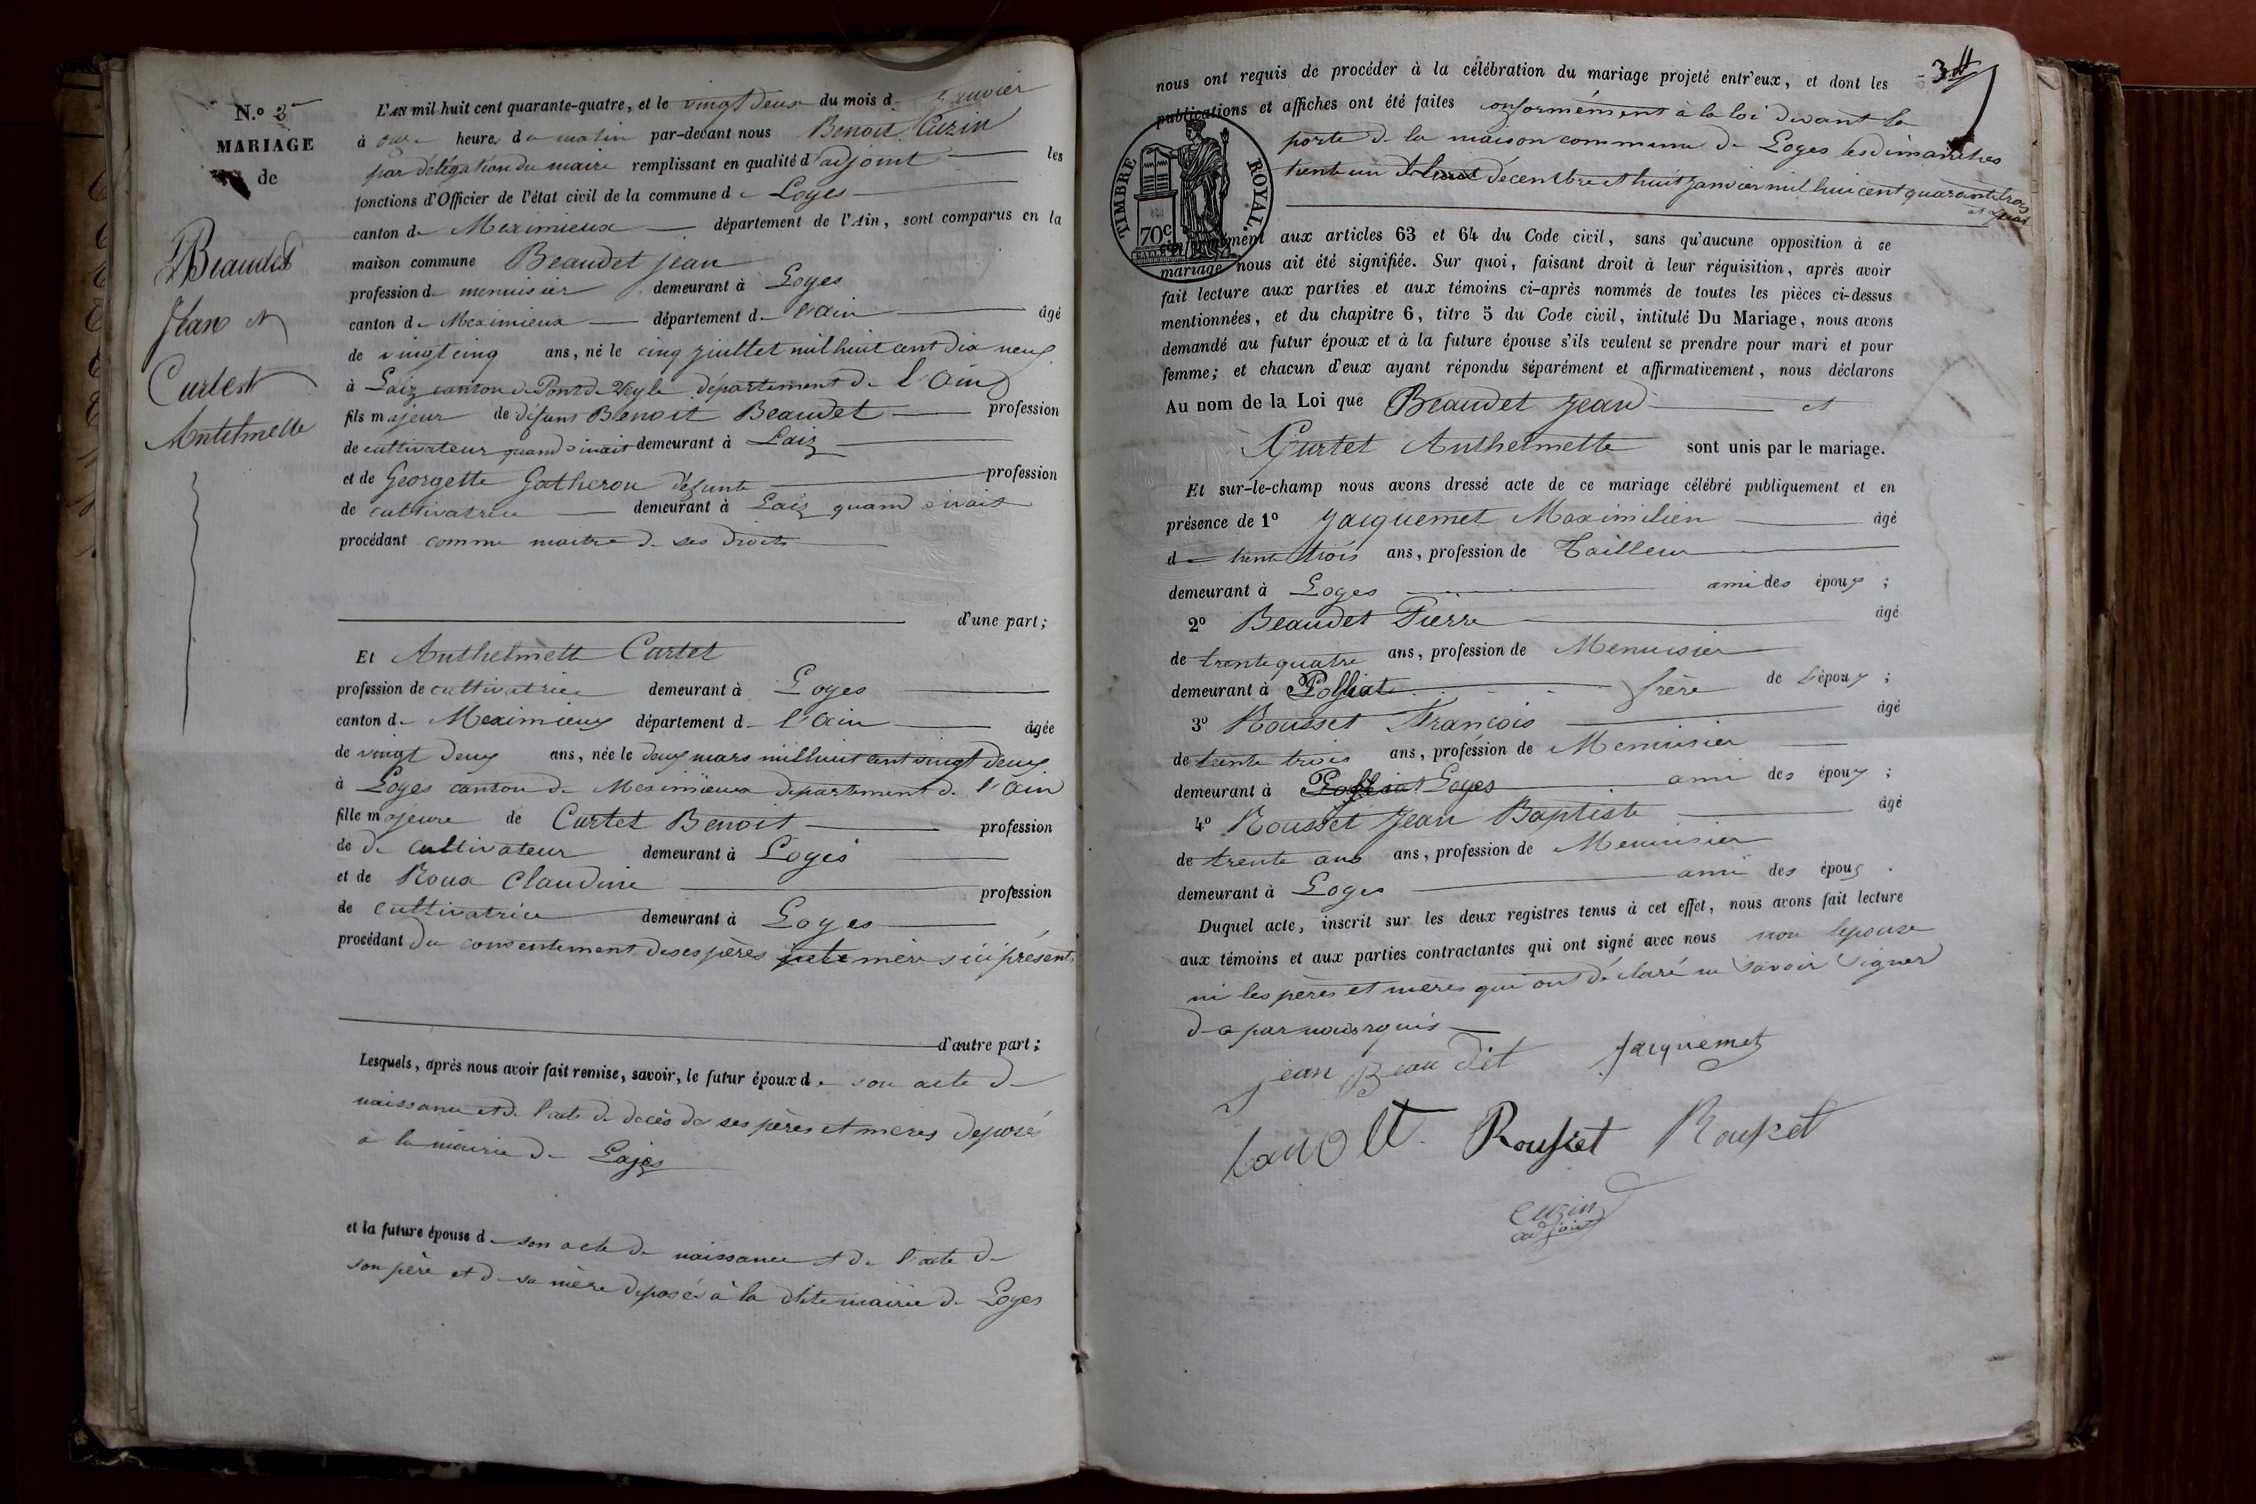 N.º 3
MARIAGE
de
Beaudet
Jean et
Curtest
Antelmette
L'AN mil huit cent quarante-quatre, et le vingt deux du mois de Janvier
à onze heures du matin par-devant nous Benoit Cuzin
par délégation du maire remplissant en qualité d'adjoint les
fonctions d'Officier de l'état civil de la commune de Loyes
canton de Meximieux département de l'Ain, sont comparus en la
maison commune Beaudet jean
profession de menuisier demeurant à Loyes
canton de Meximieux département de l'ain âgé
de vingt cinq ans, né le cinq juillet mil huit cent dix neuf
à Laiz canton de Pont de Veyle département de l'Ain
fils majeur de défunt Benoit Beaudet profession
de cultivateur quand vivait demeurant à Laiz
et de Georgette Gatheron défunte profession
de cultivatrice demeurant à Laiz quand vivait
procédant comme maitre de ses droits
d'une part;
Et Anthelmette Curtet
profession de cultivatrice demeurant à Loyes
canton de Meximieux département de l'Ain âgée
de vingt deux ans, née le deux mars mil huit cent vingt deux
à Loyes canton de Meximieux département de l'Ain
fille majeure de Curtet Benoit profession
de de cultivateur demeurant à Loyes
et de Roux Claudine profession
de cultivatrice demeurant à Loyes
procédant du consentement de ses pères et mère s ici présent
d'autre part;
Lesquels, après nous avoir fait remise, savoir, le futur époux de son acte de
naissance et de l'acte de décès de ses pères et mères déposés
à la mairie de
et la future épouse de son acte de naissance et de l'acte de
son père et de sa mère déposés à la dite mairie de Loyes
3
nous ont requis de procéder à la célébration du mariage projeté entr'eux, et dont les
publications et affiches ont été faites conformément à la loi devant la
porte de la maison commune de Loyes les dimanches
trente un décembre et huit janvier mil huit cent quarante trois
et quatre
TIMBRE ROYAL.
70c
conformément aux articles 63 et 64 du Code civil, sans qu'aucune opposition à ce
mariage nous ait été signifiée. Sur quoi, faisant droit à leur réquisition, après avoir
fait lecture aux parties et aux témoins ci-après nommés de toutes les pièces ci-dessus
mentionnées, et du chapitre 6, titre 5 du Code civil, intitulé Du Mariage, nous avons
demandé au futur époux et à la future épouse s'ils veulent se prendre pour mari et pour
femme; et chacun d'eux ayant répondu séparément et affirmativement, nous déclarons
Au nom de la Loi que Beaudet jean et
Curtet Anthelmette sont unis par le mariage.
Et sur-le-champ nous avons dressé acte de ce mariage célébré publiquement et en
présence de 1º Jacquemet Maximilien âgé
de trente trois ans, profession de Tailleur
demeurant à Loyes ami des époux ;
2º Beaudet Pierre âgé
de trente quatre ans, profession de Menuisier
demeurant à Polliat frère de l'époux ;
3º Rousset François âgé
de trente trois ans, profession de Menuisier
demeurant à Polliat Loyes ami des époux ;
4º Rousset Jean Baptiste âgé
de trente ans ans, profession de Menuisier
demeurant à Loyes ami des époux .
Duquel acte, inscrit sur les deux registres tenus à cet effet, nous avons fait lecture
aux témoins et aux parties contractantes qui ont signé avec nous non lepouse
ni les pères et mères qui ont déclaré ne savoir signer
de a par nous requis
jean Beaudet Jacquemet
Rousset Rousset
Cuzin
adjoint